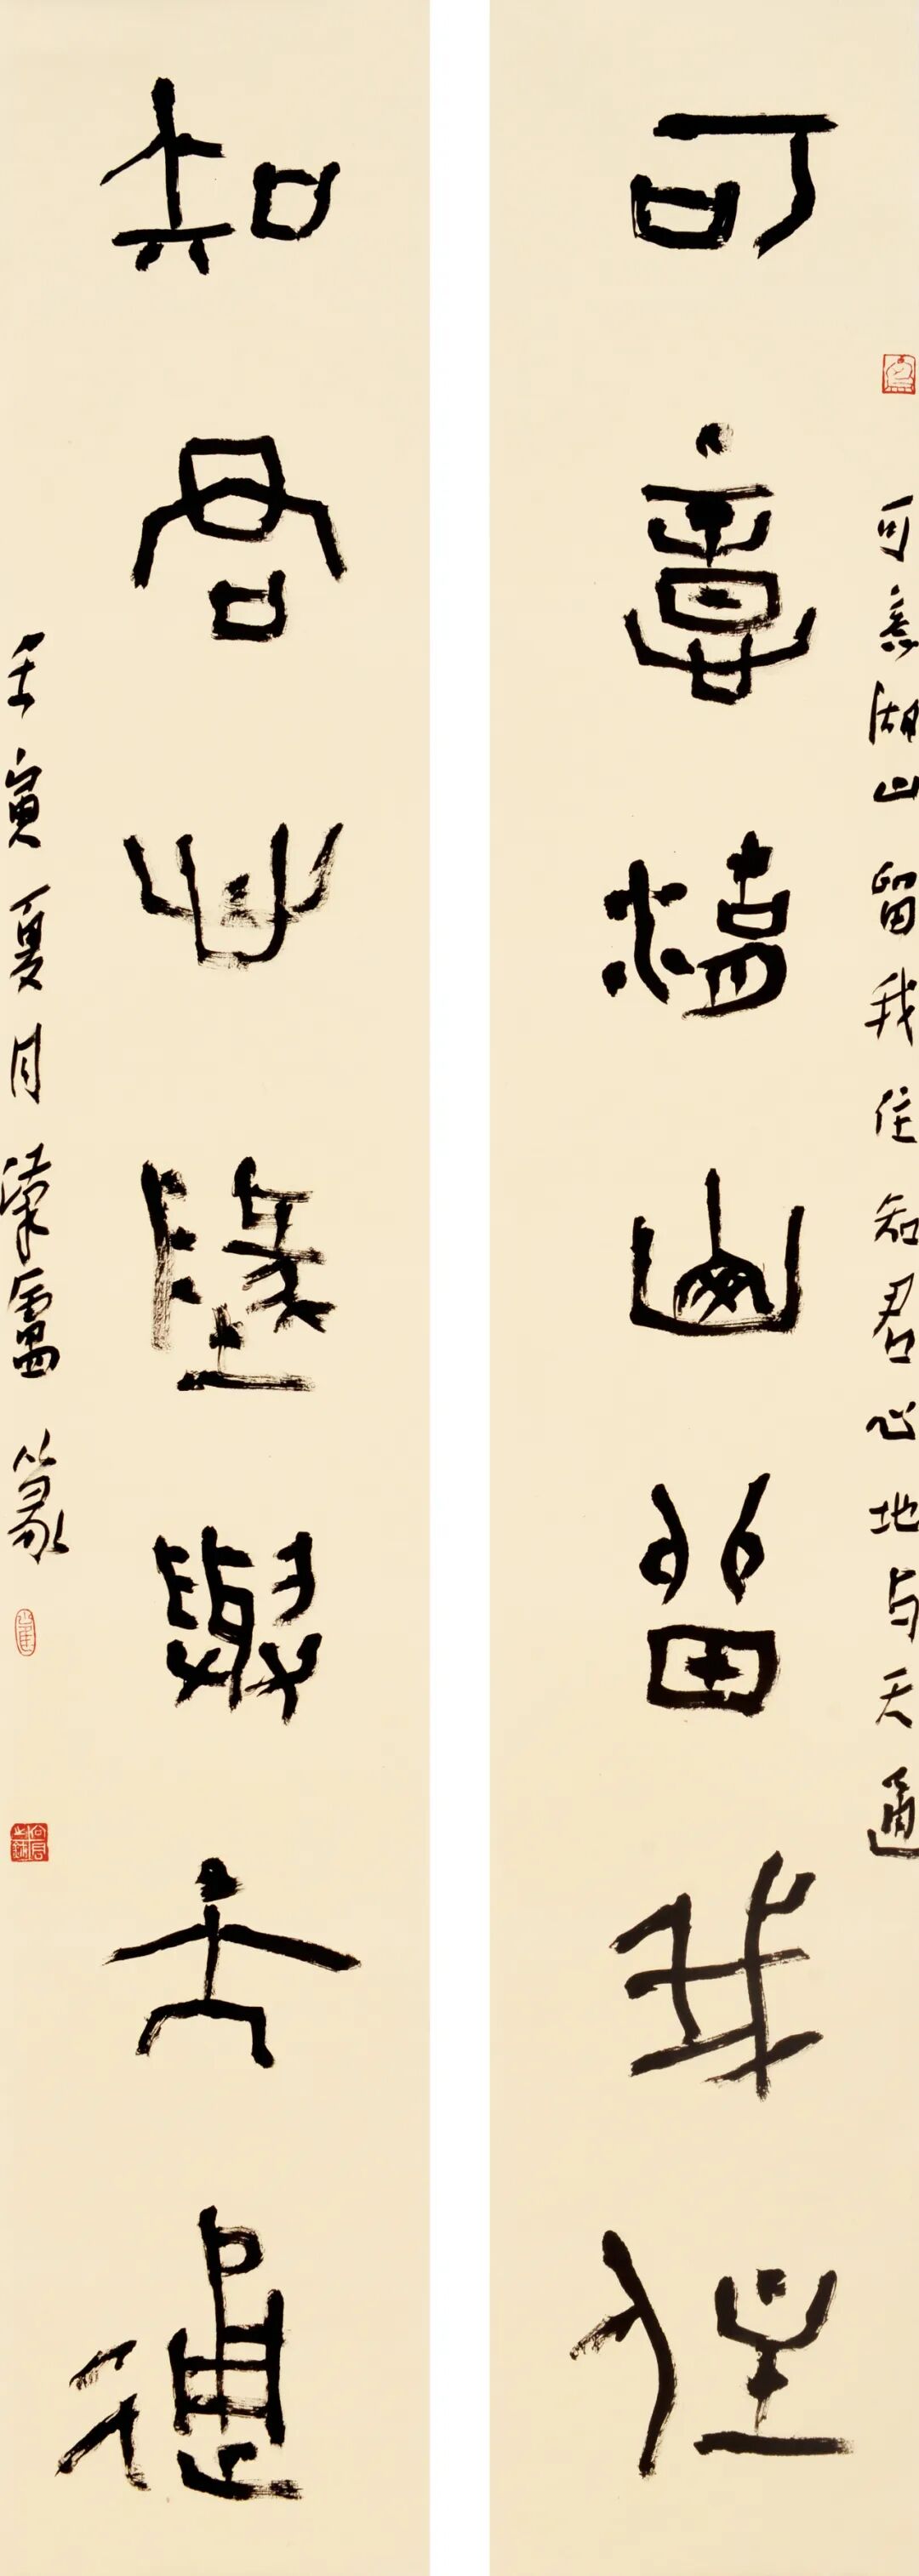 可意湖山留我住
可意湖山留我住知君心地与天通
知君心地與天通
壬寅夏月漢盦篆